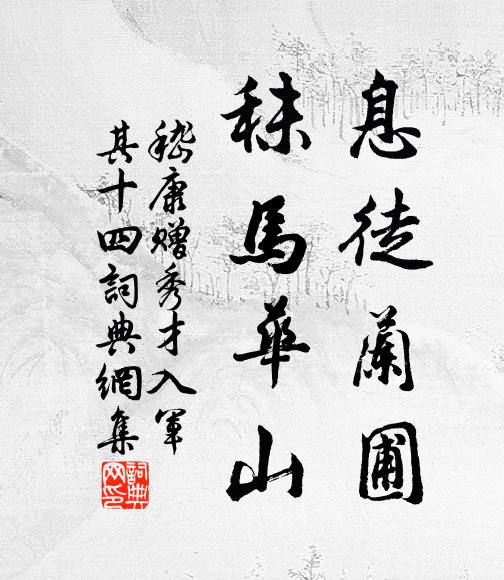 息徒蘭圃
秣馬華山
嵇康贈秀才入軍
其十四詞典網集
詞典網印